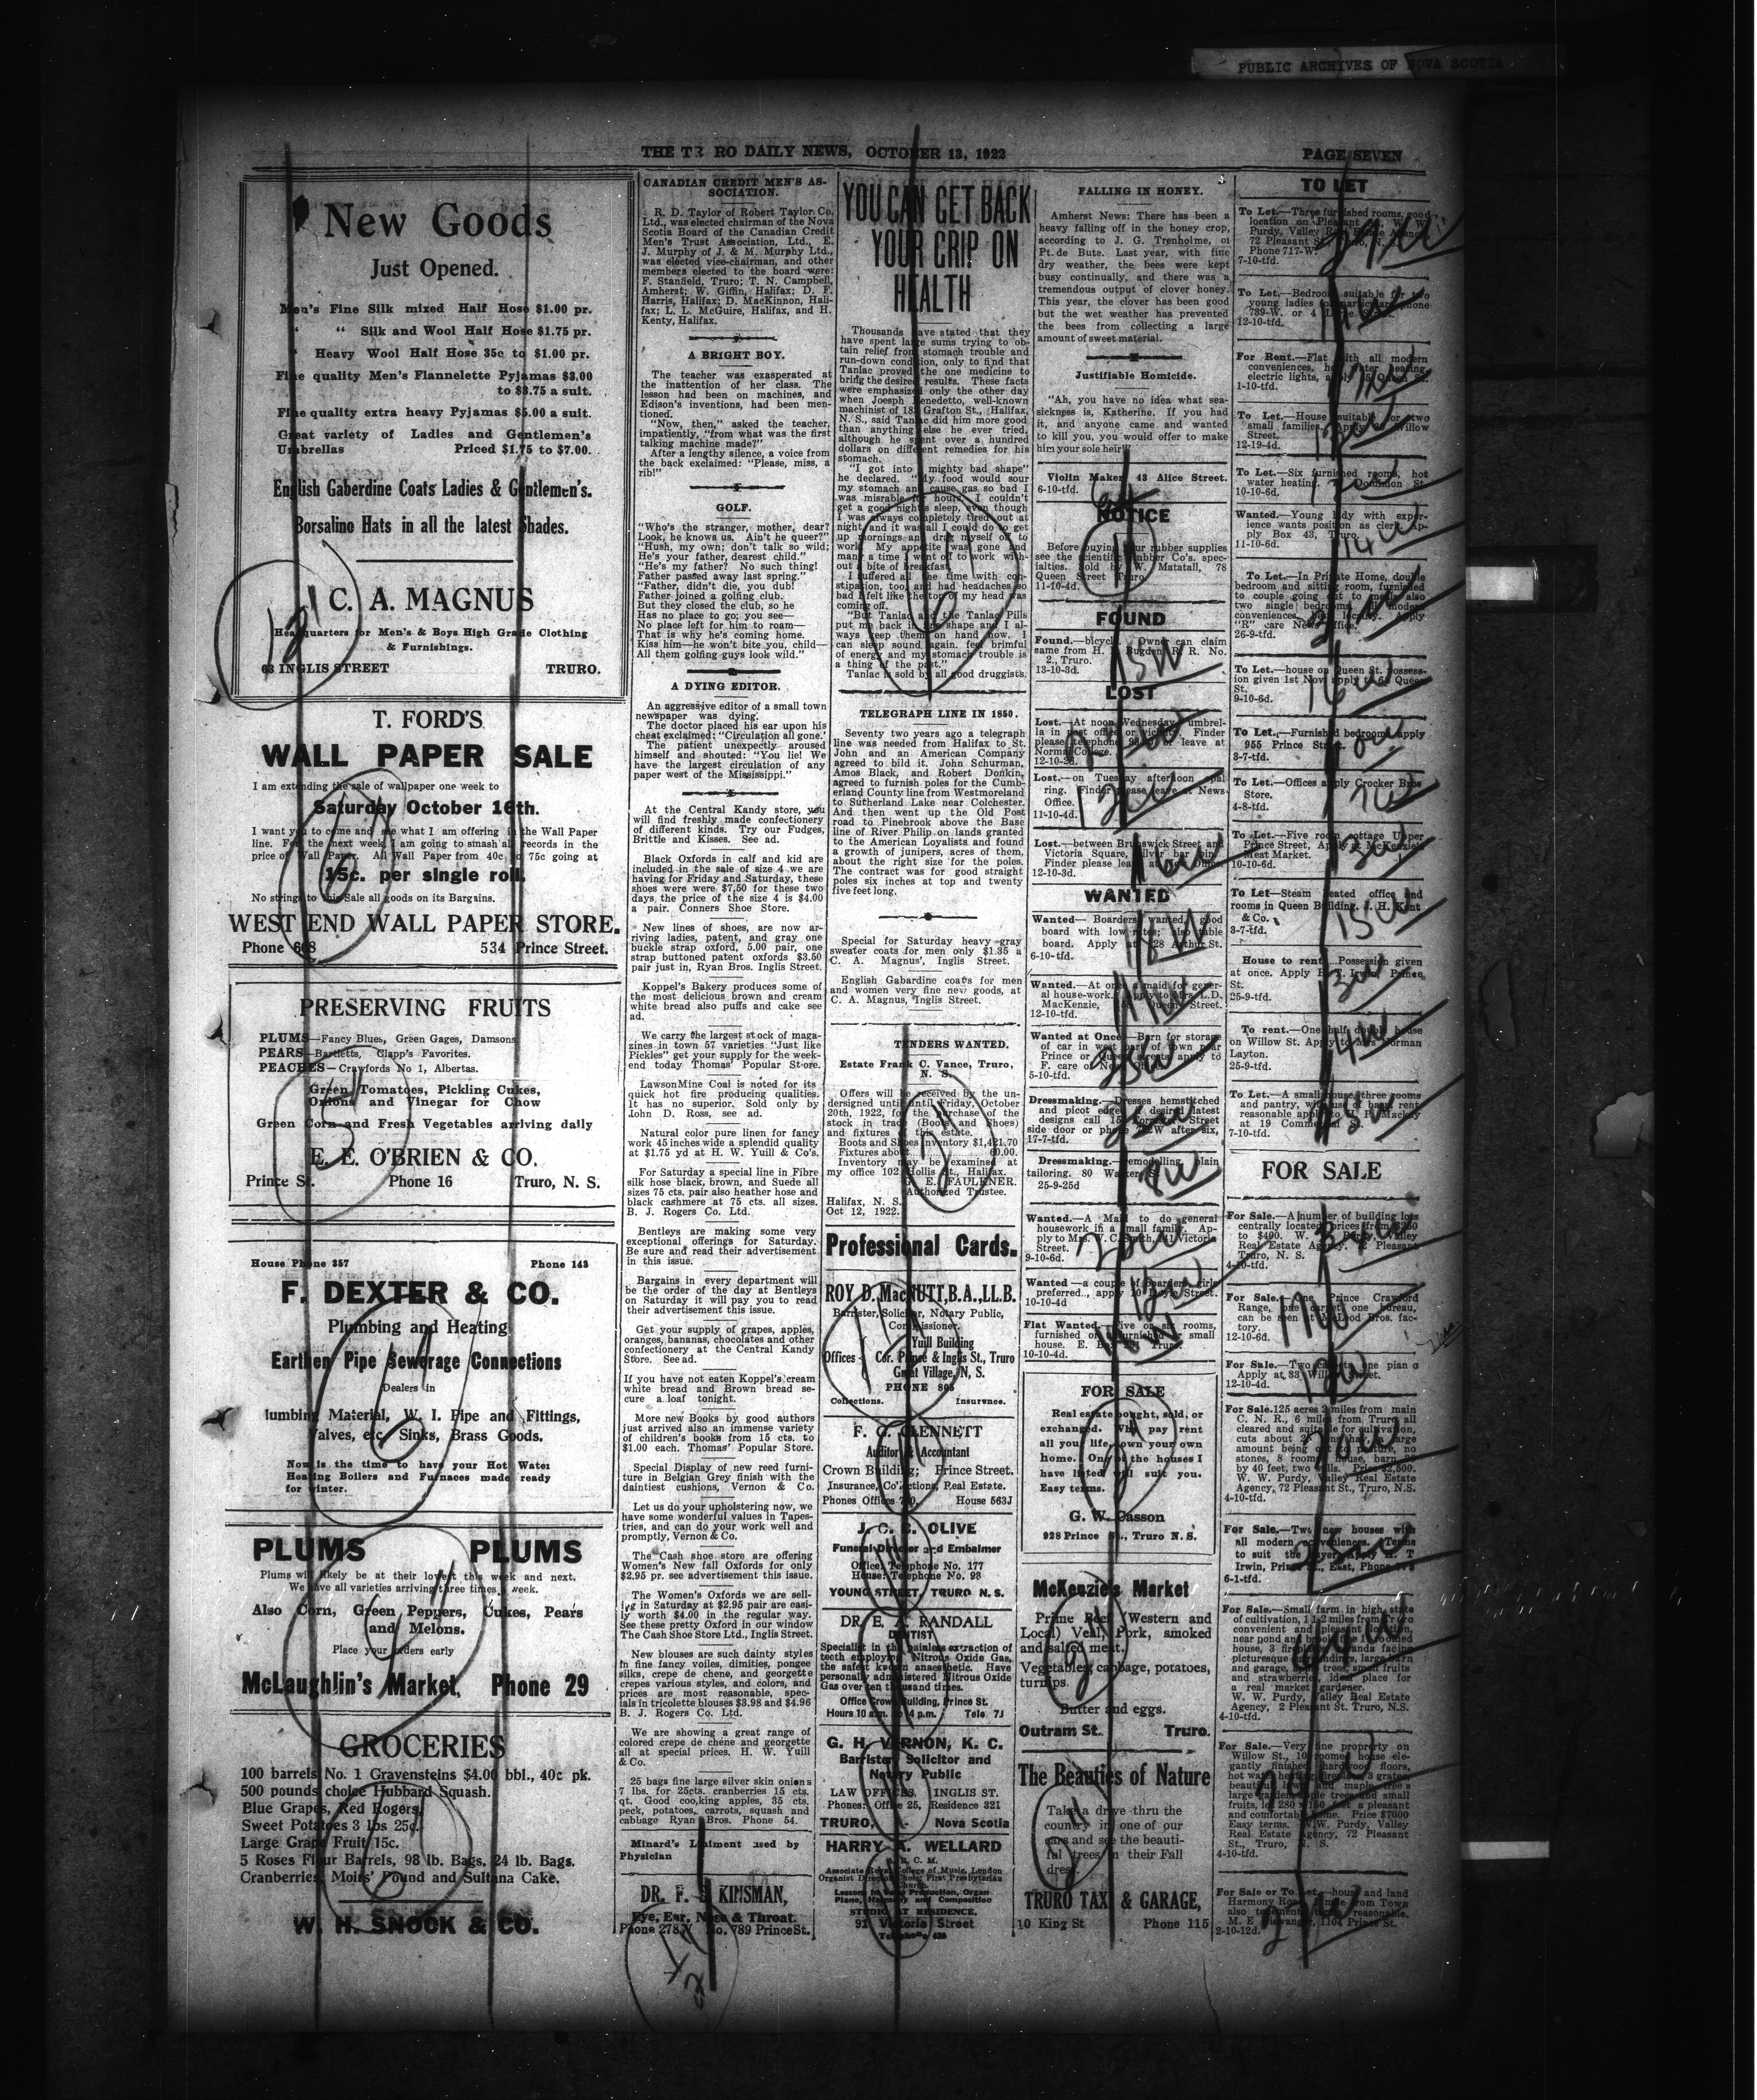 PUBLIC ARCHIVES OF NOVA SCOTIA
THE TR RO DAILY NEWS, OCTOBER 13, 1922
PAGE SEVEN
New Goods
Just Opened.
Men's Fine Silk mixed Half Hose $1.00 pr.
" Silk and Wool Half Hose $1.75 pr.
Heavy Wool Half Hose 35c to $1.00 pr.
Fine quality Men's Flannelette Pyjamas $3.00
to $3.75 a suit.
Fine quality extra heavy Pyjamas $5.00 a suit.
Great variety of Ladies and Gentlemen's
Umbrellas Priced $1.75 to $7.00.
English Gaberdine Coats Ladies & Gentlemen's.
Borsalino Hats in all the latest Shades.
C. A. MAGNUS
Headquarters for Men's & Boys High Grade Clothing
& Furnishings.
63 INGLIS STREET TRURO.
T. FORD'S
WALL PAPER SALE
I am extending the sale of wallpaper one week to
Saturday October 16th.
I want you to come and see what I am offering in the Wall Paper
line. For the next week I am going to smash all records in the
price of Wall Paper. All Wall Paper from 40c to 75c going at
15c. per single roll.
No strings to this Sale all goods on its Bargains.
WEST END WALL PAPER STORE.
Phone 608 534 Prince Street.
PRESERVING FRUITS
PLUMS—Fancy Blues, Green Gages, Damsons.
PEARS—Bartletts, Clapp's Favorites.
PEACHES—Crawfords No 1, Albertas.
Green Tomatoes, Pickling Cukes,
Onions and Vinegar for Chow
Green Corn and Fresh Vegetables arriving daily
E. E. O'BRIEN & CO.
Prince St. Phone 16 Truro, N. S.
House Phone 357 Phone 143
F. DEXTER & CO.
Plumbing and Heating
Earthen Pipe Sewerage Connections
Dealers in
lumbing Material, W. I. Pipe and Fittings,
Valves, etc. Sinks, Brass Goods.
Now is the time to have your Hot Water
Heating Boilers and Furnaces made ready
for winter.
PLUMS PLUMS
Plums will likely be at their lowest this week and next.
We have all varieties arriving three times a week.
Also Corn, Green Peppers, Cukes, Pears
and Melons.
Place your orders early
McLaughlin's Market, Phone 29
GROCERIES
100 barrels No. 1 Gravensteins $4.00 bbl., 40c pk.
500 pounds choice Hubbard Squash.
Blue Grapes, Red Rogers.
Sweet Potatoes 3 lbs 25c.
Large Grape Fruit 15c.
5 Roses Flour Barrels, 98 lb. Bags, 24 lb. Bags.
Cranberries, Moirs' Pound and Sultana Cake.
W. H. SNOCK & CO.
CANADIAN CREDIT MEN'S AS-
SOCIATION.
R. D. Taylor of Robert Taylor Co,
Ltd., was elected chairman of the Nova
Scotia Board of the Canadian Credit
Men's Trust Association, Ltd., E.
J. Murphy of J. & M. Murphy Ltd.,
was elected vice-chairman, and other
members elected to the board were:
F. Stanfield, Truro; T. N. Campbell,
Amherst; W. Giffin, Halifax; D. F.
Harris, Halifax; D. MacKinnon, Hali-
fax; L. L. McGuire, Halifax, and H.
Kenty, Halifax.
A BRIGHT BOY.
The teacher was exasperated at
the inattention of her class. The
lesson had been on machines, and
Edison's inventions, had been men-
tioned.
"Now, then," asked the teacher,
impatiently, "from what was the first
talking machine made?"
After a lengthy silence, a voice from
the back exclaimed: "Please, miss, a
rib!"
GOLF.
"Who's the stranger, mother, dear?
Look, he knows us. Ain't he queer?"
"Hush, my own; don't talk so wild;
He's your father, dearest child."
"He's my father? No such thing!
Father passed away last spring."
"Father, didn't die, you dub!
Father joined a golfing club.
But they closed the club, so he
Has no place to go; you see—
No place left for him to roam—
That is why he's coming home.
Kiss him—he won't bite you, child—
All them golfing guys look wild."
A DYING EDITOR.
An aggressive editor of a small town
newspaper was dying.
The doctor placed his ear upon his
chest exclaimed: "Circulation all gone.'
The patient unexpectly aroused
himself and shouted: "You lie! We
have the largest circulation of any
paper west of the Mississippi."
At the Central Kandy store, you
will find freshly made confectionery
of different kinds. Try our Fudges,
Brittle and Kisses. See ad.
Black Oxfords in calf and kid are
included in the sale of size 4 we are
having for Friday and Saturday, these
shoes were were $7.50 for these two
days the price of the size 4 is $4.00
a pair. Conners Shoe Store.
New lines of shoes, are now ar-
riving ladies, patent, and gray one
buckle strap oxford, 5.00 pair, one
strap buttoned patent oxfords $3.50
pair just in, Ryan Bros. Inglis Street.
Koppel's Bakery produces some of
the most delicious brown and cream
white bread also puffs and cake see
ad.
We carry the largest stock of maga-
zines in town 57 varieties "Just like
Pickles" get your supply for the week-
end today Thomas' Popular Store.
LawsonMine Coal is noted for its
quick hot fire producing qualities.
It has no superior. Sold only by
John D. Ross, see ad.
Natural color pure linen for fancy
work 45 inches wide a splendid quality
at $1.75 yd at H. W. Yuill & Co's.
For Saturday a special line in Fibre
silk hose black, brown, and Suede all
sizes 75 cts. pair also heather hose and
black cashmere at 75 cts. all sizes.
B. J. Rogers Co. Ltd.
Bentleys are making some very
exceptional offerings for Saturday.
Be sure and read their advertisement
in this issue.
Bargains in every department will
be the order of the day at Bentleys
on Saturday it will pay you to read
their advertisement this issue.
Get your supply of grapes, apples,
oranges, bananas, chocolates and other
confectionery at the Central Kandy
Store. See ad.
If you have not eaten Koppel's cream
white bread and Brown bread se-
cure a loaf tonight.
More new Books by good authors
just arrived also an immense variety
of children's books from 15 cts. to
$1.00 each. Thomas' Popular Store.
Special Display of new reed furni-
ture in Belgian Grey finish with the
daintiest cushions, Vernon & Co.
Let us do your upholstering now, we
have some wonderful values in Tapes-
tries, and can do your work well and
promptly, Vernon & Co.
The Cash shoe store are offering
Women's New fall Oxfords for only
$2.95 pr. see advertisement this issue.
The Women's Oxfords we are sell-
ing in Saturday at $2.95 pair are easi-
ly worth $4.00 in the regular way.
See these pretty Oxford in our window
The Cash Shoe Store Ltd., Inglis Street.
New blouses are such dainty styles
in fine fancy voiles, dimities, pongee
silks, crepe de chene, and georgette
crepes various styles, and colors, and
prices are most reasonable, spec-
ials in tricolette blouses $3.98 and $4.96
B. J. Rogers Co. Ltd.
We are showing a great range of
colored crepe de chene and georgette
all at special prices. H. W. Yuill
& Co.
25 bags fine large silver skin onions
7 lbs. for 25cts. cranberries 15 cts.
qt. Good cooking apples, 35 cts.
peck, potatoes, carrots, squash and
cabbage Ryan Bros. Phone 54.
Minard's Liniment used by
Physician
DR. F. S. KINSMAN,
Eye, Ear, Nose & Throat.
Phone 278X No. 789 Prince St.
YOU CAN GET BACK
YOUR GRIP ON
HEALTH
Thousands have stated that they
have spent large sums trying to ob-
tain relief from stomach trouble and
run-down condition, only to find that
Tanlac proved the one medicine to
bring the desired results. These facts
were emphasized only the other day
when Joesph Benedetto, well-known
machinist of 18 Grafton St., Halifax,
N. S., said Tanlac did him more good
than anything else he ever tried,
although he spent over a hundred
dollars on different remedies for his
stomach.
"I got into mighty bad shape"
he declared. "My food would sour
my stomach and cause gas so bad I
was misrable for hours. I couldn't
get a good night's sleep, even though
I was always completely tired out at
night and it was all I could do to get
up mornings and drag myself off to
work. My appetite was gone and
many a time I went off to work with-
out a bite of breakfast.
I suffered all the time with con-
stipation, too, and had headaches so
bad I felt like the top of my head was
coming off.
"But Tanlac and the Tanlac Pills
put me back in fine shape and I al-
ways keep them on hand now. I
can sleep sound again. feel brimful
of energy and my stomach trouble is
a thing of the past."
Tanlac is sold by all good druggists.
TELEGRAPH LINE IN 1850.
Seventy two years ago a telegraph
line was needed from Halifax to St.
John and an American Company
agreed to bild it. John Schurman,
Amos Black, and Robert Donkin,
agreed to furnish poles for the Cumb-
erland County line from Westmoreland
to Sutherland Lake near Colchester.
And then went up the Old Post
road to Pinebrook above the Base
line of River Philip on lands granted
to the American Loyalists and found
a growth of junipers, acres of them,
about the right size for the poles.
The contract was for good straight
poles six inches at top and twenty
five feet long.
Special for Saturday heavy gray
sweater coats for men only $1.35 a
C. A. Magnus', Inglis Street.
English Gabardine coats for men
and women very fine new goods, at
C. A. Magnus, Inglis Street.
TENDERS WANTED.
Estate Frank C. Vance, Truro,
N. S.
Offers will be received by the un-
dersigned until until Friday, October
20th, 1922, for the purchase of the
stock in trade (Boots and Shoes)
and fixtures of this estate.
Boots and Shoes inventory $1,421.70
Fixtures about 60.00.
Inventory may be examined at
my office 102 Hollis St., Halifax.
E. FAULKNER.
Authorized Trustee.
Halifax, N. S.
Oct 12, 1922.
Professional Cards.
ROY D. MacNUTT, B.A., LL.B.
Barrister, Solicitor, Notary Public,
Commissioner.
Yuill Building
Offices Cor. Prince & Inglis St., Truro
Great Village, N. S.
PHONE 805
Collections. Insurance.
F. G. GLENNETT
Auditor & Accountant
Crown Building; Prince Street.
Insurance, Collections, Real Estate.
Phones Office 7 0. House 563J
J. C. B. OLIVE
Funeral Director and Embalmer
Office: Telephone No. 177
House: Telephone No. 98
YOUNG STREET, TRURO N. S.
DR. E. A. RANDALL
DENTIST
Specialist in the painless extraction of
teeth employing Nitrous Oxide Gas,
the safest known anaesthetic. Have
personally administered Nitrous Oxide
Gas over ten thousand times.
Office Crown Building, Prince St.
Hours 10 a.m. 4 p.m. Tele 7J
G. H. VERNON, K. C.
Barrister, Solicitor and
Notary Public
LAW OFFICES, INGLIS ST.
Phones: Office 25, Residence 321
TRURO, - Nova Scotia
HARRY A. WELLARD
R. C. M.
Associate Royal College of Music, London
Organist Director Choir; First Presbyterian
Church.
Lessons in Voice Production, Organ
Piano, Harmony and Composition
STUDIO AT RESIDENCE,
91 Victoria Street
FALLING IN HONEY.
Amherst News: There has been a
heavy falling off in the honey crop,
according to J. G. Trenholme, of
Pt. de Bute. Last year, with fine
dry weather, the bees were kept
busy continually, and there was a
tremendous output of clover honey.
This year, the clover has been good
but the wet weather has prevented
the bees from collecting a large
amount of sweet material.
Justifiable Homicide.
"Ah, you have no idea what sea-
sickness is, Katherine. If you had
it, and anyone came and wanted
to kill you, you would offer to make
him your sole heir"
Violin Maker 43 Alice Street.
6-10-tfd.
NOTICE
Before buying your rubber supplies
see the Scientific Rubber Co's. spec-
ialties. Sold by W. Matatall, 78
Queen Street Truro.
11-10-4d.
FOUND
Found.—bicycle. Owner can claim
same from H. Bugden, R. R. No.
2., Truro.
13-10-3d.
LOST
Lost.—At noon Wednesday umbrel-
la in post office or vicinity. Finder
please telephone or leave at
Normal College.
12-10-2d.
Lost.—on Tuesday afternoon opal
ring. Finder please leave at News
Office.
11-10-4d.
Lost.—between Brunswick Street and
Victoria Square, silver bar pin.
Finder please leave at
12-10-3d.
WANTED
Wanted— Boarders wanted, good
board with low rates; also table
board. Apply at 28 Arthur St.
6-10-tfd.
Wanted.—At once a maid for gener-
al house-work. Apply to Mrs. L.D.
MacKenzie, Queen Street.
12-10-tfd.
Wanted at Once—Barn for storage
of car in west part of town near
Prince or Queen streets apply to
F. care of News Office.
5-10-tfd.
Dressmaking.—Dresses hemstitched
and picot edged if desired latest
designs call 15 Street
side door or phone W after six,
17-7-tfd.
Dressmaking.—remodelling, plain
tailoring. 80 Walker St.
25-9-25d
Wanted.—A Maid to do general
housework in a small family. Ap-
ply to Mrs. W. C. Smith, 141 Victoria
Street.
9-10-6d.
Wanted —a couple of boarders, girls
preferred., apply 10 Doyle Street.
10-10-4d
Flat Wanted.—Five or six rooms,
furnished or unfurnished or small
house. E. Box Truro.
10-10-4d.
FOR SALE
Real estate bought, sold, or
exchanged. Why pay rent
all your life, own your own
home. One of the houses I
have listed will suit you.
Easy terms.
G. W. Casson
928 Prince St., Truro N. S.
McKenzie's Market
Prime Beef (Western and
Local) Veal, Pork, smoked
and salted meat.
Vegetables, cabbage, potatoes,
turnips.
Butter and eggs.
Outram St. Truro.
The Beauties of Nature
Take a drive thru the
country in one of our
cars and see the beauti-
ful trees in their Fall
dress.
TRURO TAXI & GARAGE,
10 King St Phone 115
TO LET
To Let.—Three furnished rooms, good
location on Pleasant St., W. W.
Purdy, Valley Real Estate Agency,
72 Pleasant St., Truro, N. S.
Phone 717-W.
7-10-tfd.
To Let,—Bedroom suitable for two
young ladies
789-W. or 4
12-10-tfd.
For Rent.—Flat with all modern
conveniences, hot water heating,
electric lights, apply 35 Queen St.
1-10-tfd.
To Let.—House suitable for two
small families. Apply Willow
Street.
12-19-4d.
To Let.—Six furnished rooms, hot
water heating. Dominion St.
10-10-6d.
Wanted.—Young lady with exper-
ience wants position as clerk. Ap-
ply Box 43, Truro.
11-10-6d.
To Let.—In Private Home, double
bedroom and sitting room, furnished
to couple going out to meals also
two single bedrooms, all modern
conveniences, best locality. Apply
"R" care News Office.
26-9-tfd.
To Let.—house on Queen St. Possess-
ion given 1st Nov. apply to 66 Queen
St.
9-10-6d.
To Let.—Furnished bedroom, apply
955 Prince Street.
3-7-tfd.
To Let.—Offices apply Crocker Bros
Store.
4-8-tfd.
To Let.—Five room cottage Upper
Prince Street, Apply at McKenzie's
Meat Market.
10-10-6d.
To Let—Steam heated office and
rooms in Queen Building. J. H. Kent
& Co.
3-7-tfd.
House to rent.—Possession given
at once. Apply Prince
St.
25-9-tfd.
To rent.—One half double house
on Willow St. Apply to Mrs. Norman
Layton.
25-9-tfd.
To Let.—A small house, three rooms
and pantry, with use of barn, rent
reasonable apply to H. P. Mackay
at 19 Commercial St.
7-10-tfd.
FOR SALE
For Sale.—A number of building lots
centrally located, prices from $250
to $400. W. W. Purdy, Valley
Real Estate Agency, 72 Pleasant
Truro, N. S.
4-10-tfd.
For Sale.—One Prince Crawford
Range, one carpet, one bureau,
can be seen at McLeod Bros. fac-
tory.
12-10-6d.
For Sale.—Two carpets, one piano
Apply at 33 Willow Street.
12-10-4d.
For Sale.125 acres 2 miles from main
C. N. R., 6 miles from Truro, all
cleared and suitable for cultivation,
cuts about 2 tons hay, a large
amount being out to pasture, no
stones, 8 roomed house, barn
by 46 feet, two wells. Price $2,500.
W. W. Purdy, Valley Real Estate
Agency, 72 Pleasant St., Truro, N.S.
4-10-tfd.
For Sale.—Two new houses with
all modern conveniences. Terms
to suit the buyer. Apply H. T
Irwin, Prince St., East, Phone
6-1-tfd.
For Sale.—Small farm in high state
of cultivation, 1 1-2 miles from Truro
convenient and pleasant location,
near pond and brook, roomed
house, 3 fireplaces, veranda facing
picturesque surroundings, large barn
and garage, apple trees, small fruits
and strawberries, ideal place for
a real market gardener.
W. W. Purdy, Valley Real Estate
Agency, 2 Pleasant St. Truro, N.S.
4-10-tfd.
For Sale.—Very fine property on
Willow St., 10 roomed house ele-
gantly finished, hardwood floors,
hot water heating, fireplace, 3 grates,
beautiful lawn and maple trees a
large garden, apple trees and small
fruits, lot 280 x 150 feet a pleasant
and comfortable home. Price $7000
Easy terms. W.W. Purdy, Valley
Real Estate Agency, 72 Pleasant
St., Truro, N. S.
4-10-tfd.
For Sale or To Let.—house and land
Harmony Road, from Town
also tenement, reasonable,
M. E. 1104 Prince St.
2-10-12d.